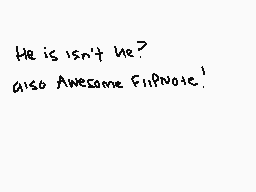 He is isn't he?
also Awesome FlipNote!